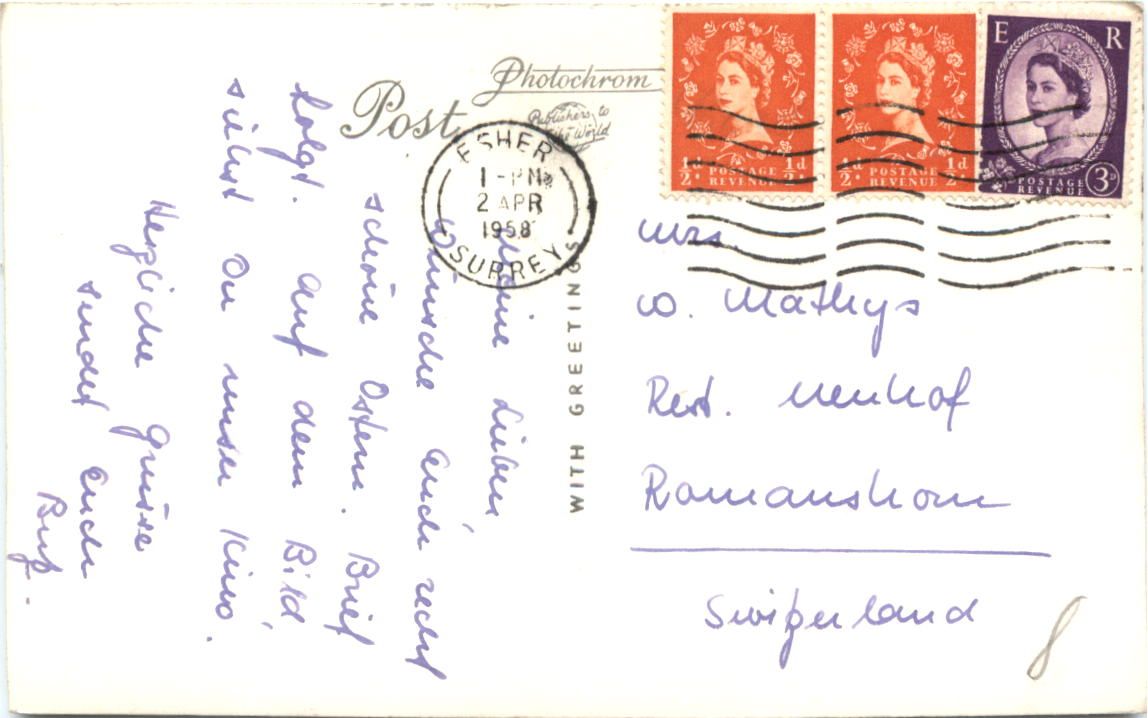 Photochrom
Post
Publishers to
the World
ESHER
1-PM
2 APR
1958
SURREY
½d ½d
POSTAGE
REVENUE
½d ½d
POSTAGE
REVENUE
E R
POSTAGE
REVENUE
3D
WITH GREETINGS
Meine Lieben,
Wünsche Euch recht
schöne Ostern. Brief
folgt. Auf dem Bild,
siehst Du unser Kino.
Herzliche Grüsse
sendet Euch
Mrs
W. Mathys
Rest. Neuhof
Romanshorn
Switzerland
8